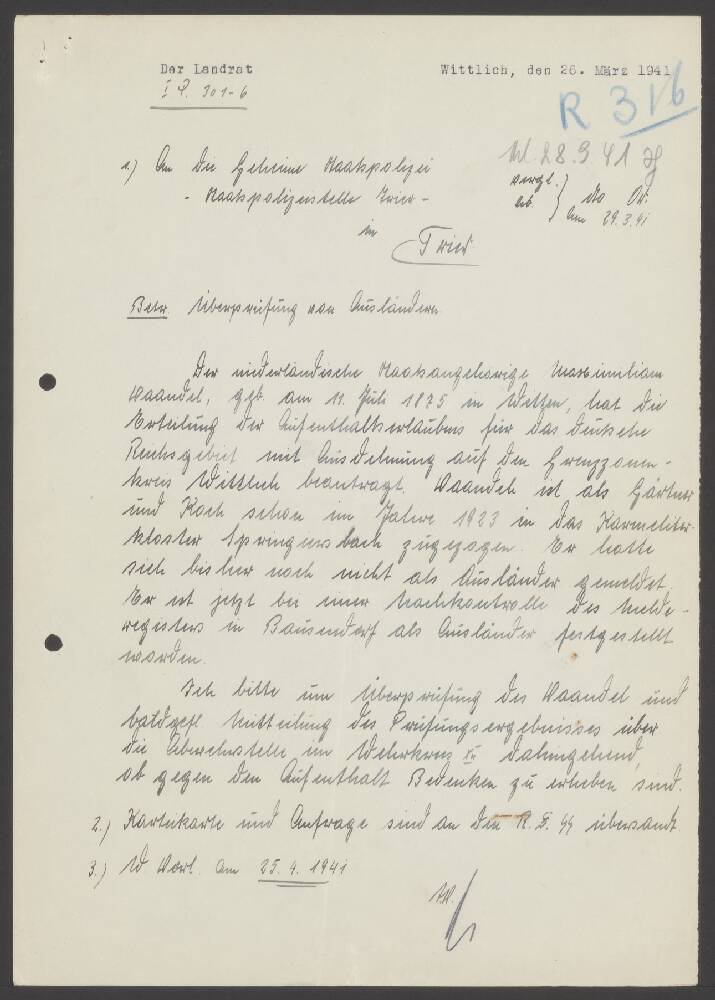 Der Landrat
Wittlich, den 26. März 1941
I P. 301-6
R 31b
28.3.41
1.) An die Geheime Staatspolizei
vergl.
ab.
- Staatspolizeistelle Trier -
am 29.3.41
in
Trier
Betr. Überprüfung von Ausländern
Der niederländische Staatsangehörige Maximilian
Waandel, geb. am 11. Juli 1875 in, hat die
Erteilung der Aufenthaltserlaubnis für das deutsche
Reichsgebiet mit Ausdehnung auf den Grenzzonen-
kreis Wittlich beantragt. Waandel ist als Gärtner
und Koch schon im Jahre 1923 in das Karmeliter-
kloster Springiersbach zugezogen. Er hatte
sich bisher noch nicht als Ausländer gemeldet.
Er ist jetzt bei einer Nachkontrolle des Melde-
registers in Bausendorf als Ausländer festgestellt
worden.
Ich bitte um Überprüfung des Waandel und
baldgefl. Mitteilung des Prüfungsergebnisses über
die Abwehrstelle im Wehrkreis XII dahingehend,
ob gegen den Aufenthalt Bedenken zu erheben sind.
2.) Karteikarte und Anfrage sind an den R. F. SS übersandt
3.) W Vorl. am 25.4.1941